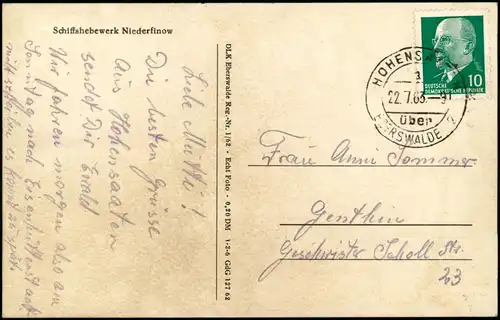 Schiffshebewerk Niederfinow
Liebe Mutti!
Die besten Grüsse
aus Hohensaaten
sendet Dir Ewald
Wir fahren morgen also am
Sonntag nach Eisenhüttenstadt.
mitschreiben es kommt zu spät.
DLK Eberswalde Reg.-Nr. 1/62 · Echt Foto · 0,20 DM 1-2-6 GdG 127 62
HOHENS
a
22.7.63.-9
über
EBERSWALDE 2
DEUTSCHE
DEMOKRATISCHE REPUBLIK
10
Frau Anni Sommer
Genthin
Geschwister Scholl Str.
23